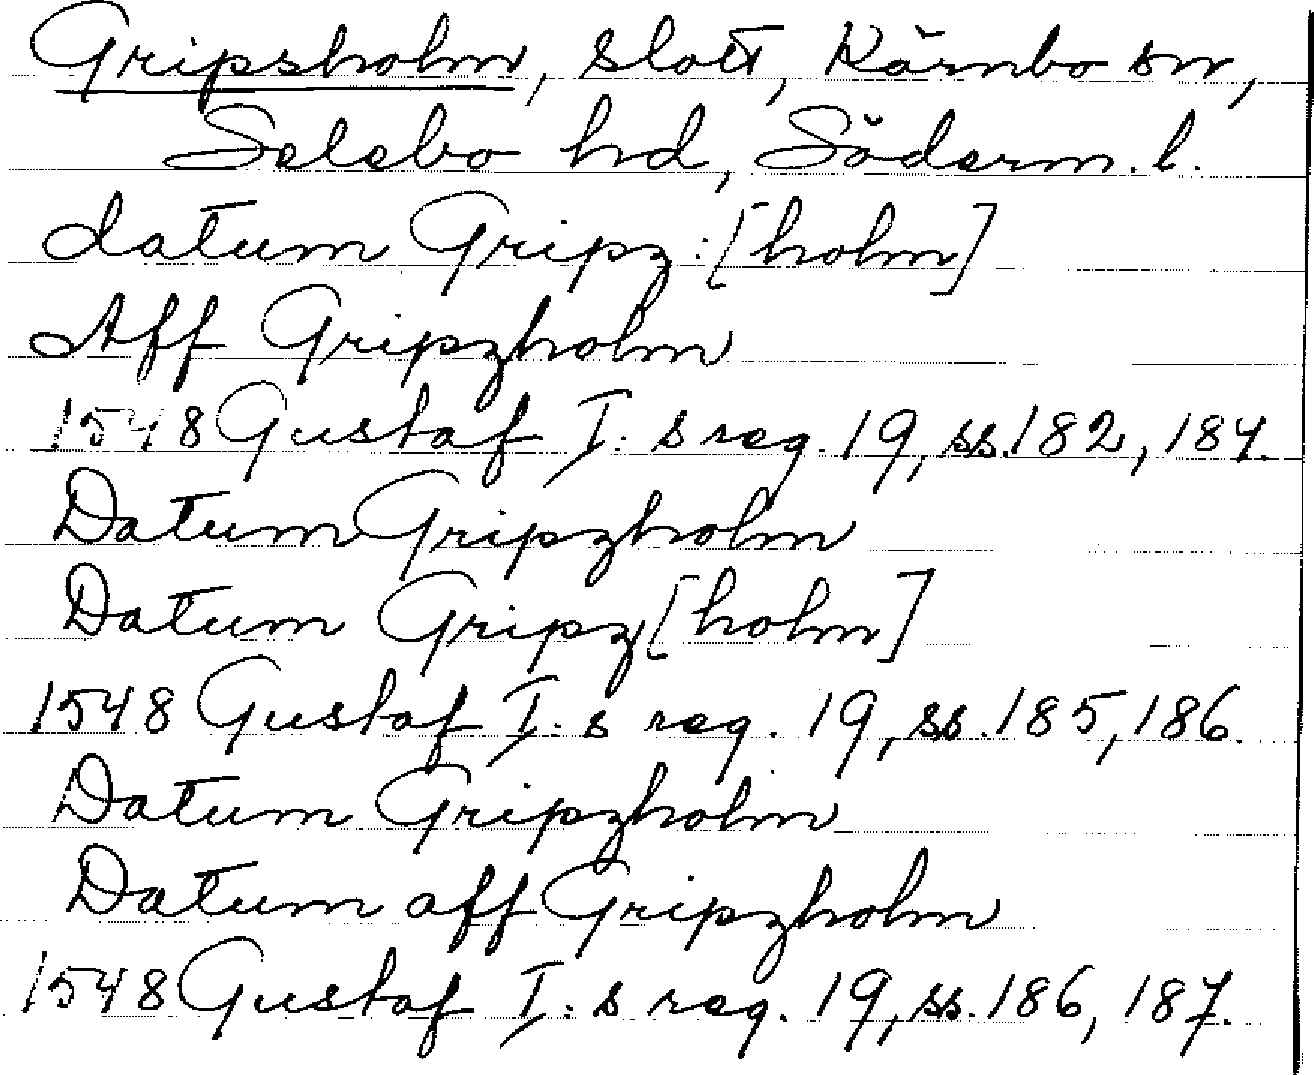 Gripsholm, slott, Kärnbo sn,
Selebo hd, Söderm. l.
datum Gripz:[holm]
Aff Gripzholm
1548 Gustaf I:s reg. 19, ss. 182, 184.
Datum Gripzholm
Datum Gripz[holm]
1548 Gustaf I:s reg. 19, ss. 185, 186.
Datum Gripzholm
Datum aff Gripzholm
1548 Gustaf I:s reg. 19, ss. 186, 187.